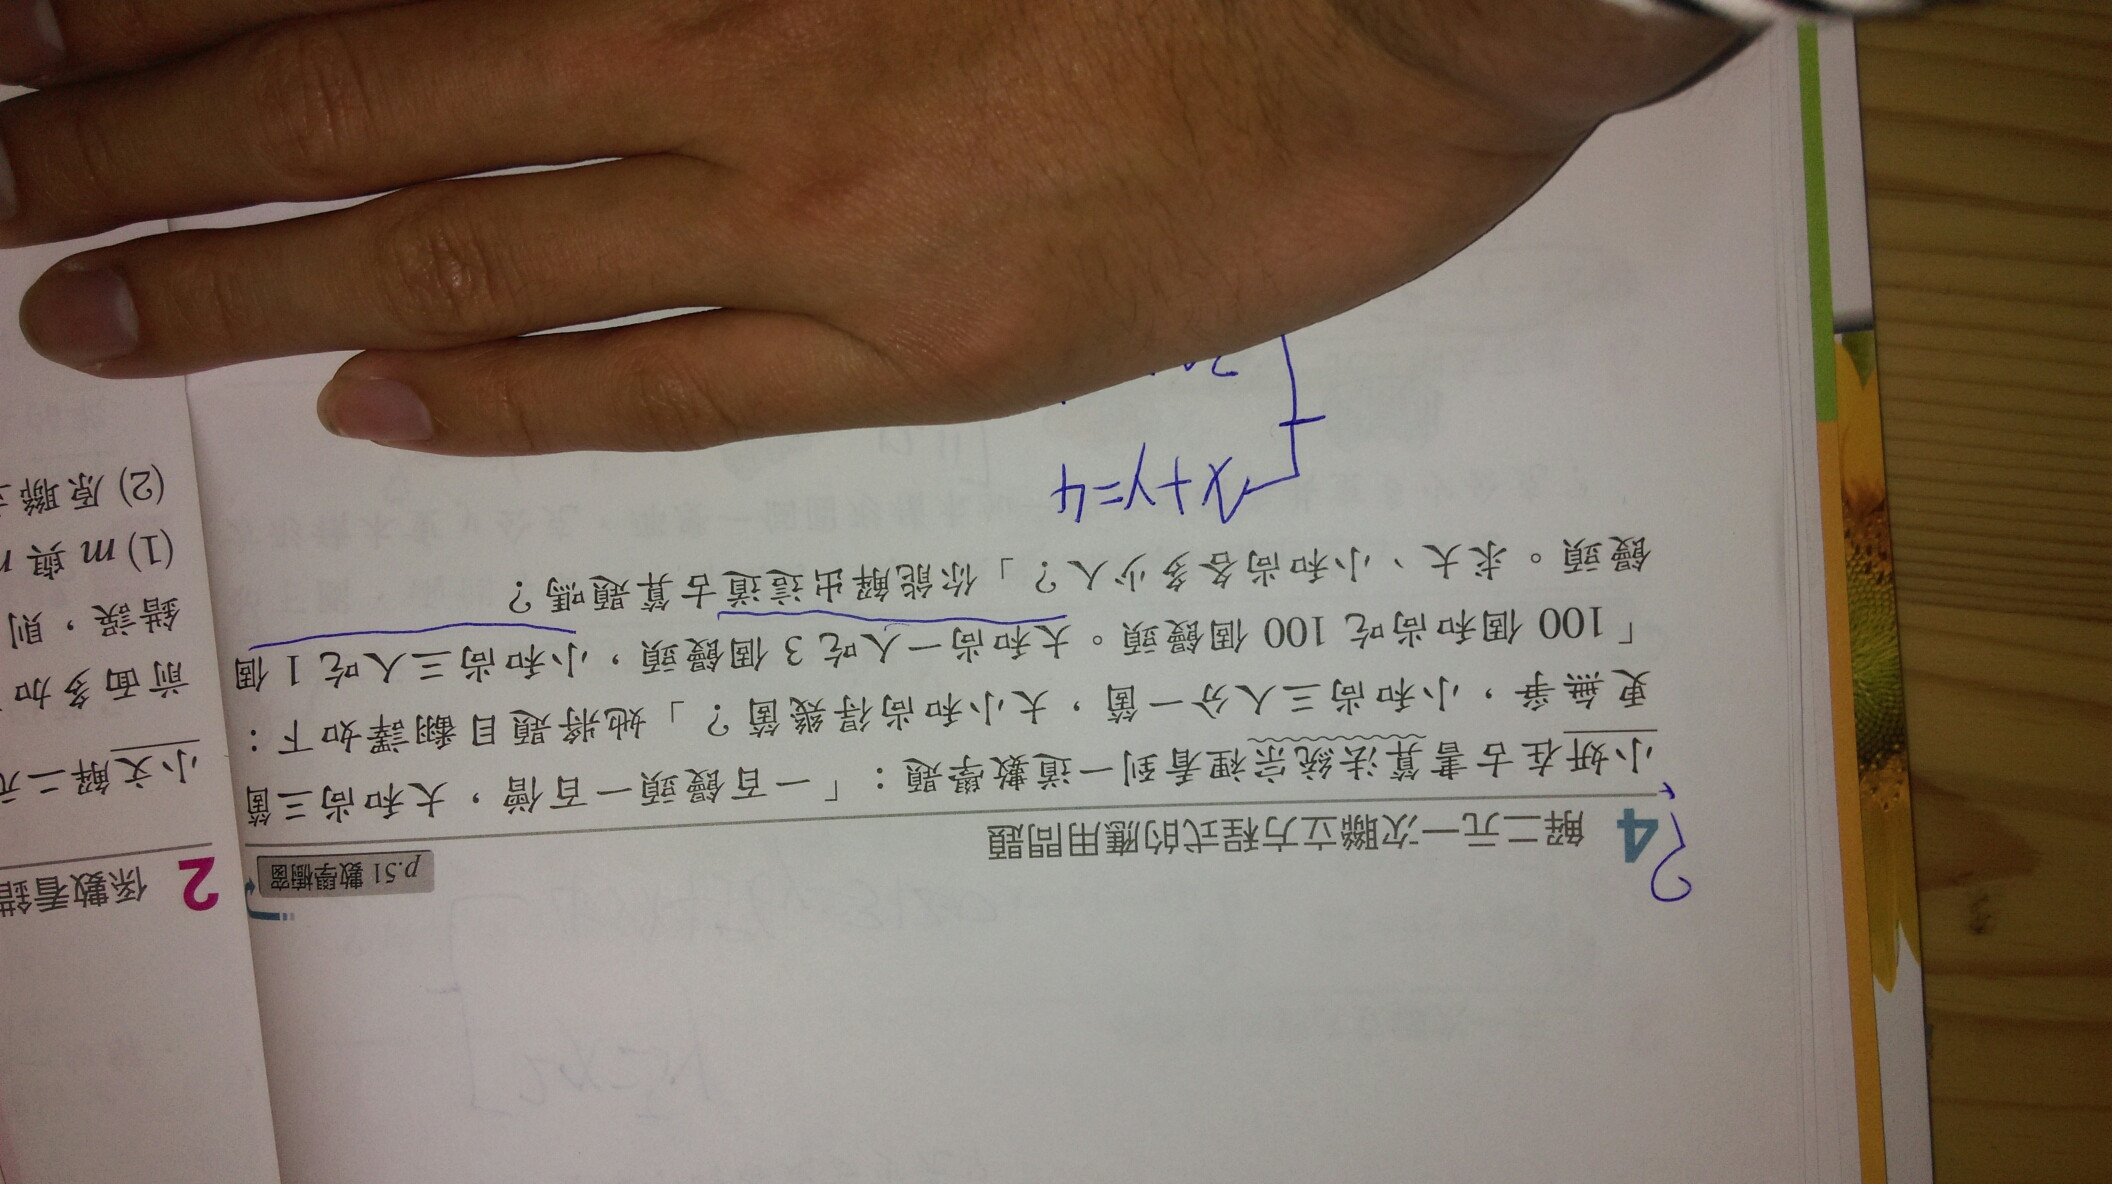 p.51 數學櫥窗
4 解二元一次聯立方程式的應用問題
小妍在古書算法統宗裡看到一道數學題：「一百饅頭一百僧，大和尚三箇
更無爭，小和尚三人分一箇，大小和尚得幾箇？」她將題目翻譯如下：
「100 個和尚吃 100 個饅頭。大和尚一人吃 3 個饅頭，小和尚三人吃 1 個
饅頭。求大、小和尚各多少人？」你能解出這道古算題嗎？
x+y=4
2 係數看錯
小文解二元
前面多加
錯誤，則
(1) m 與
(2) 原聯